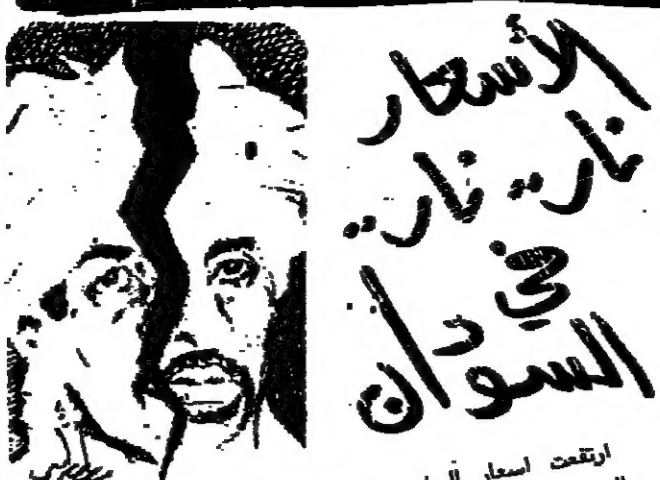 الأسعار
نار.. نار..
في
السودان
ارتفعت اسعار